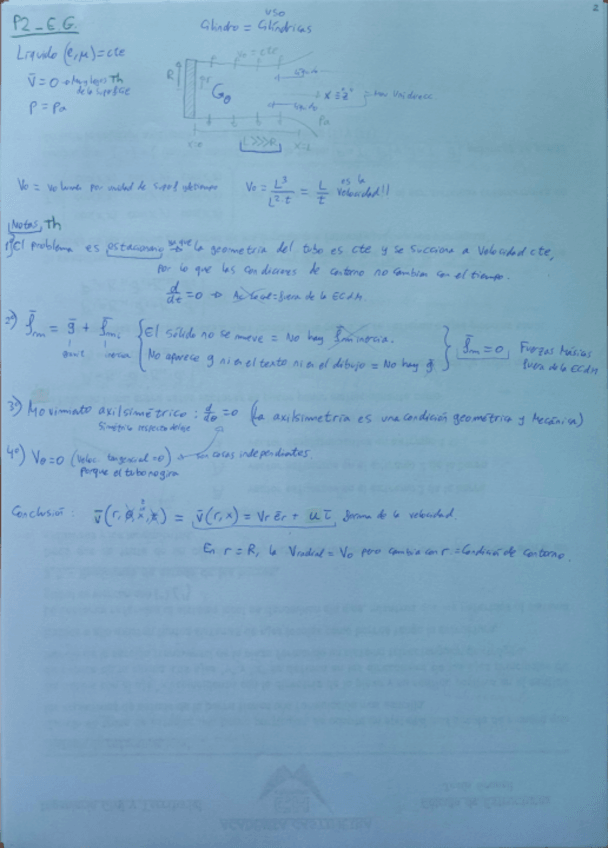 2
P2_E.G.
uso
Cilindro = Cilíndricas
Líquido (ρ, μ) = cte
V̄ = 0
P = Pa
R
r
G₀
Pa
x=0
L>>>R
V₀ = volumen por unidad de superf y tiempo V₀ = L³/(L²·t) = L/t es la velocidad!!
Notas, Th
1º) El problema es estacionario ya que la geometría del tubo es cte y se succiona a velocidad cte,
por lo que las condiciones de contorno no cambian con el tiempo.
d/dt = 0 → Ac local = fuera de la ECDM.
2º) f̄m = ḡ + f̄m,
inercia
El sólido no se mueve = No hay f̄m inercia.
No aparece g ni en el texto ni en el dibujo = No hay ḡ
f̄m = 0 Fuerzas Másicas
fuera de la ECDM
3º) Movimiento axilsimétrico: d/dθ = 0 (La axilsimetría es una condición geométrica y Mecánica)
Simetría respecto del eje
4º) Vθ = 0 (veloc. tangencial = 0) son cosas independientes
porque el tubo no gira
Conclusión: v̄(r, θ, x, t) = v̄(r,x) = Vr ēr + u ī forma de la velocidad.
En r = R, la Vradial = V₀ pero cambia con r = Condición de contorno.